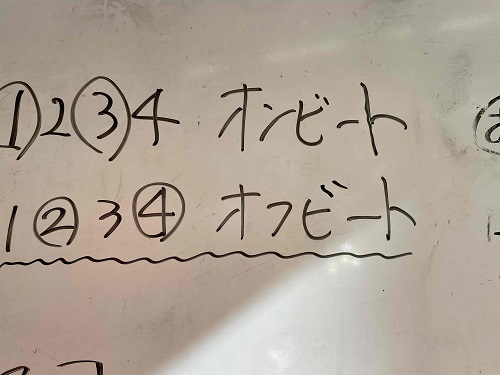 ①2③4 オンビート
1②3④ オフビート